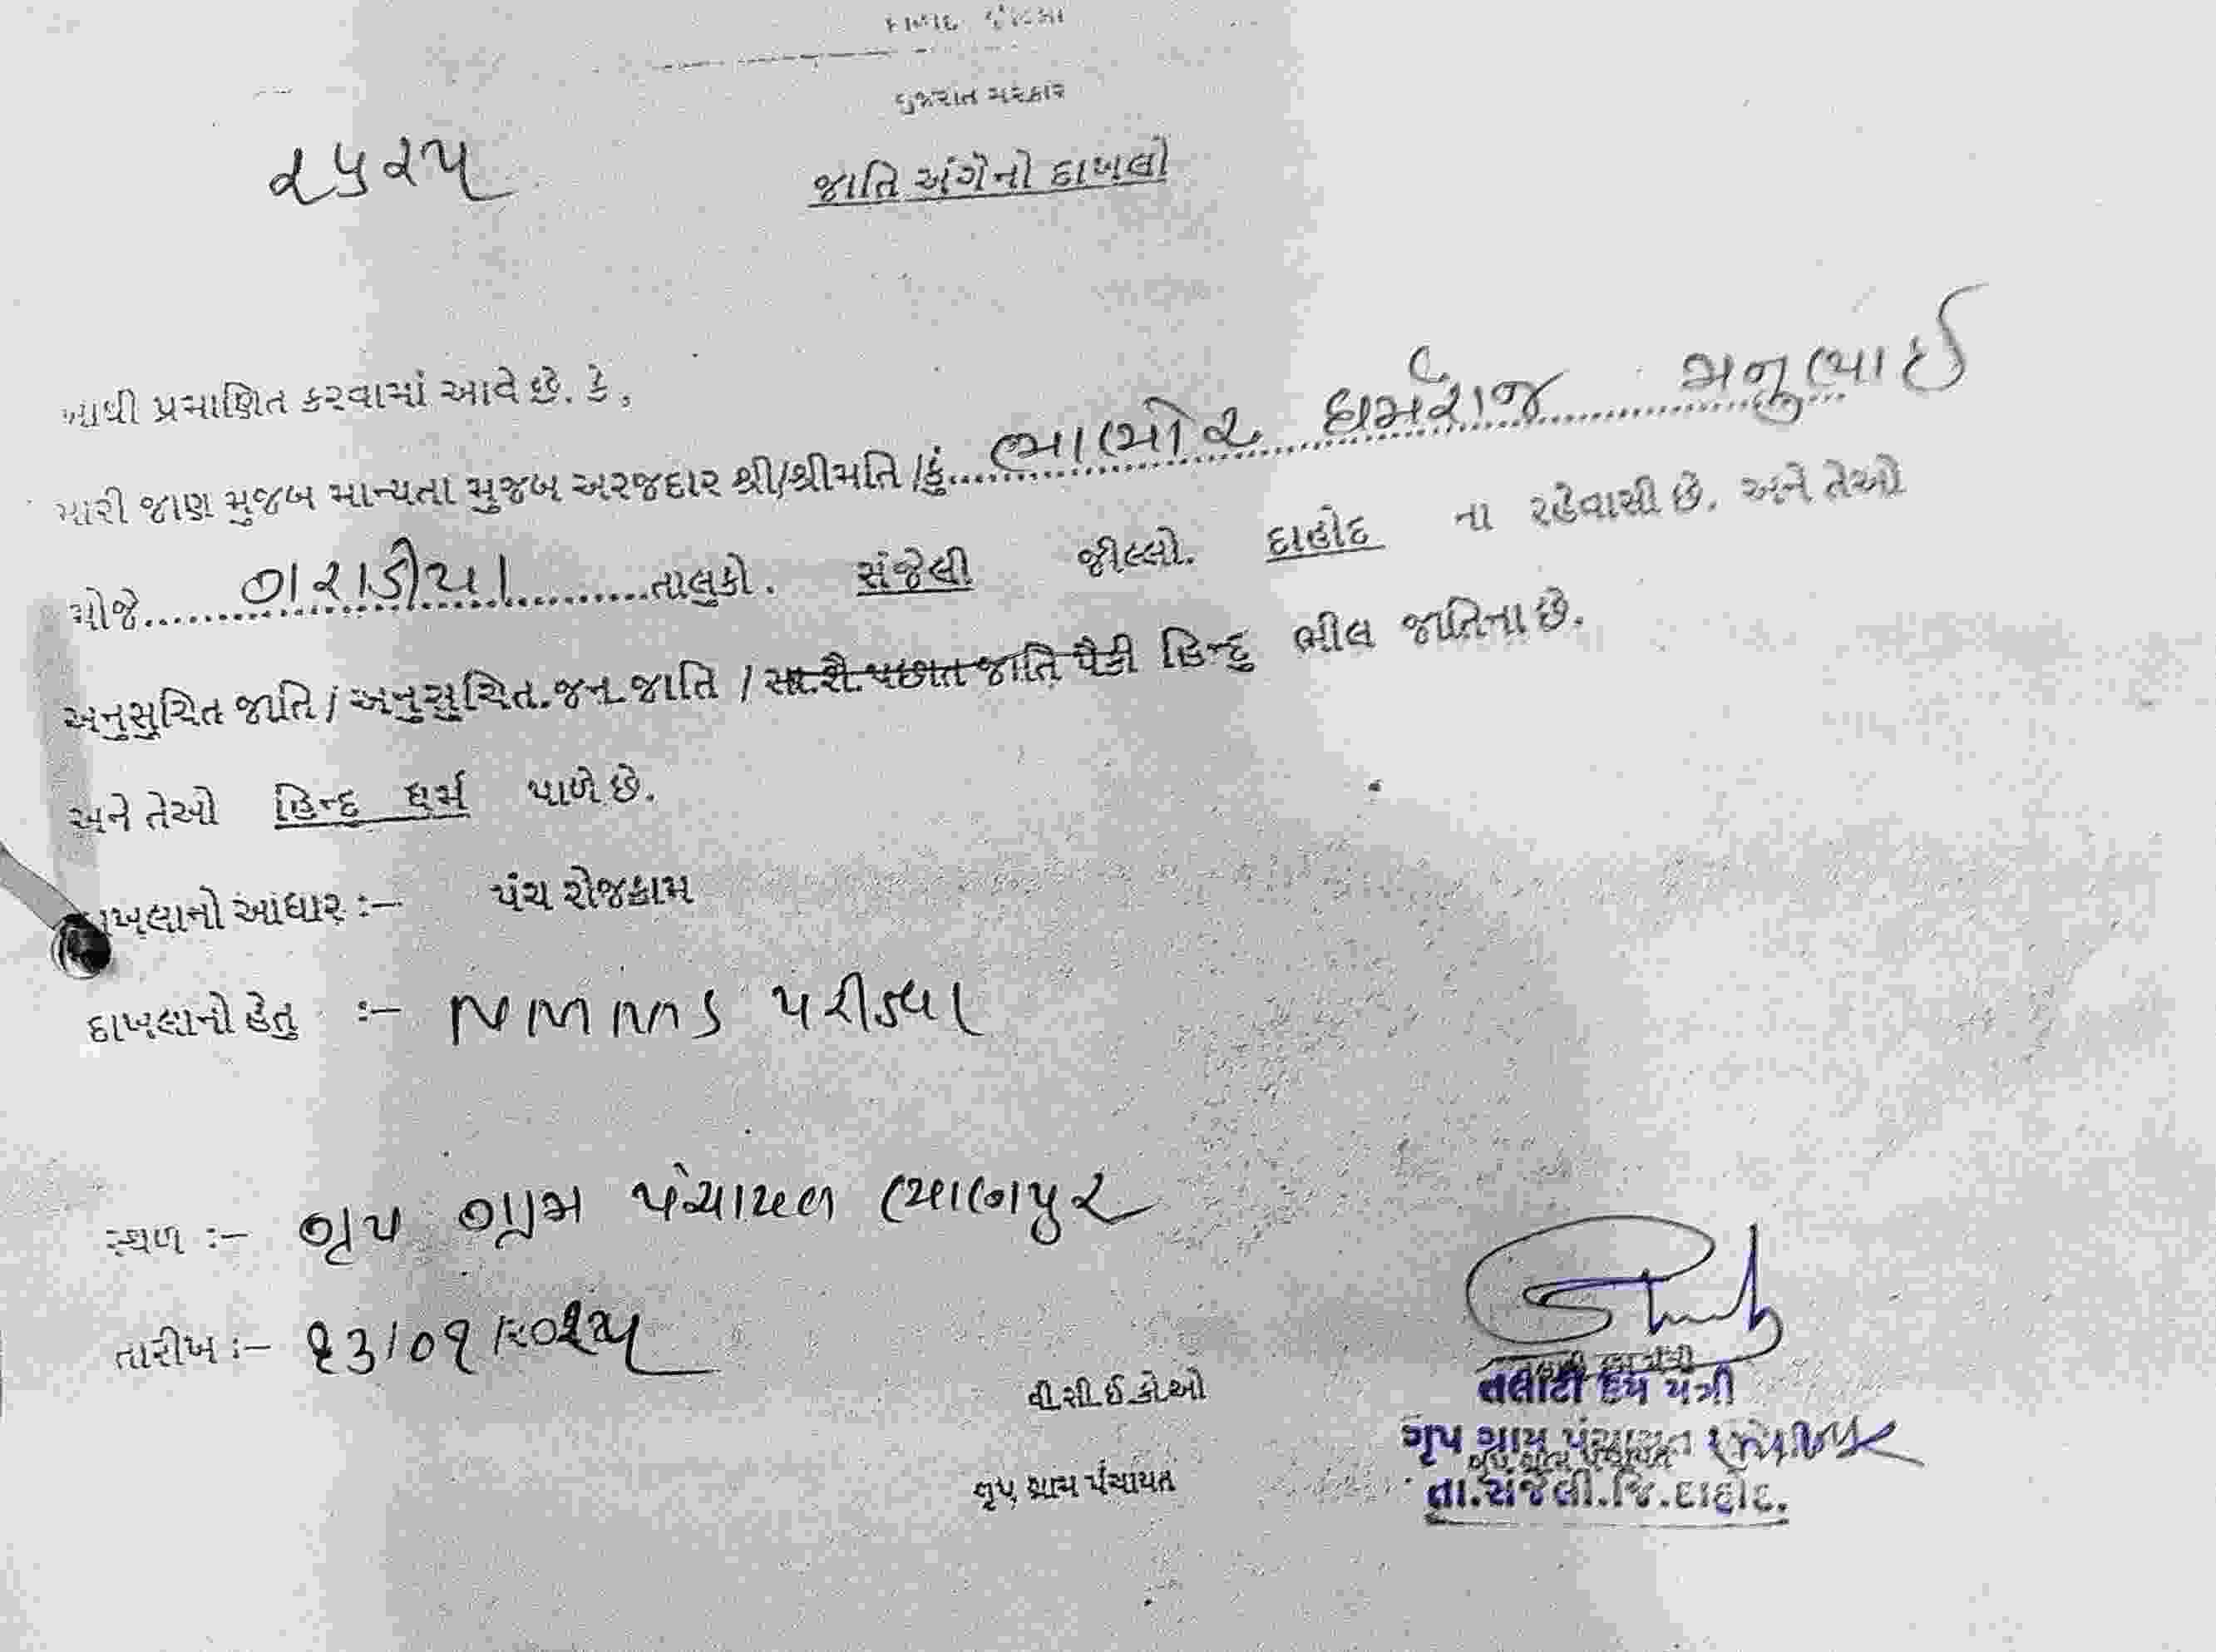 ગુજરાત સરકાર
૨૫૨૫
જાતિ અંગેનો દાખલો
આથી પ્રમાણિત કરવામાં આવે છે. કે,
મારી જાણ મુજબ માન્યતા મુજબ અરજદાર શ્રી/શ્રીમતિ /કું. ભાભોર ધર્મરાજ મનુભાઈ
મોજે. ગરાડીયા તાલુકો. સંજેલી જીલ્લો. દાહોદ ના રહેવાસી છે. અને તેઓ
અનુસુચિત જાતિ / અનુસુચિત.જન.જાતિ / સા.શૈ.પછાત જાતિ પૈકી હિન્દુ ભીલ જાતિના છે.
અને તેઓ હિન્દુ ધર્મ પાળે છે.
દાખલાનો આધાર :- પંચ રોજકામ
દાખલાનો હેતુ :- NMMS પરીક્ષા
સ્થળ :- ગૃપ ગ્રામ પંચાયત ભાણપુર
તારીખ :- ૧૩/૦૧/૨૦૨૫
વી.સી.ઈ.કો.ઓ
ગૃપ ગ્રામ પંચાયત
તલાટી કમ મંત્રી
ગૃપ ગ્રામ પંચાયત
તા.સંજેલી.જિ.દાહોદ.